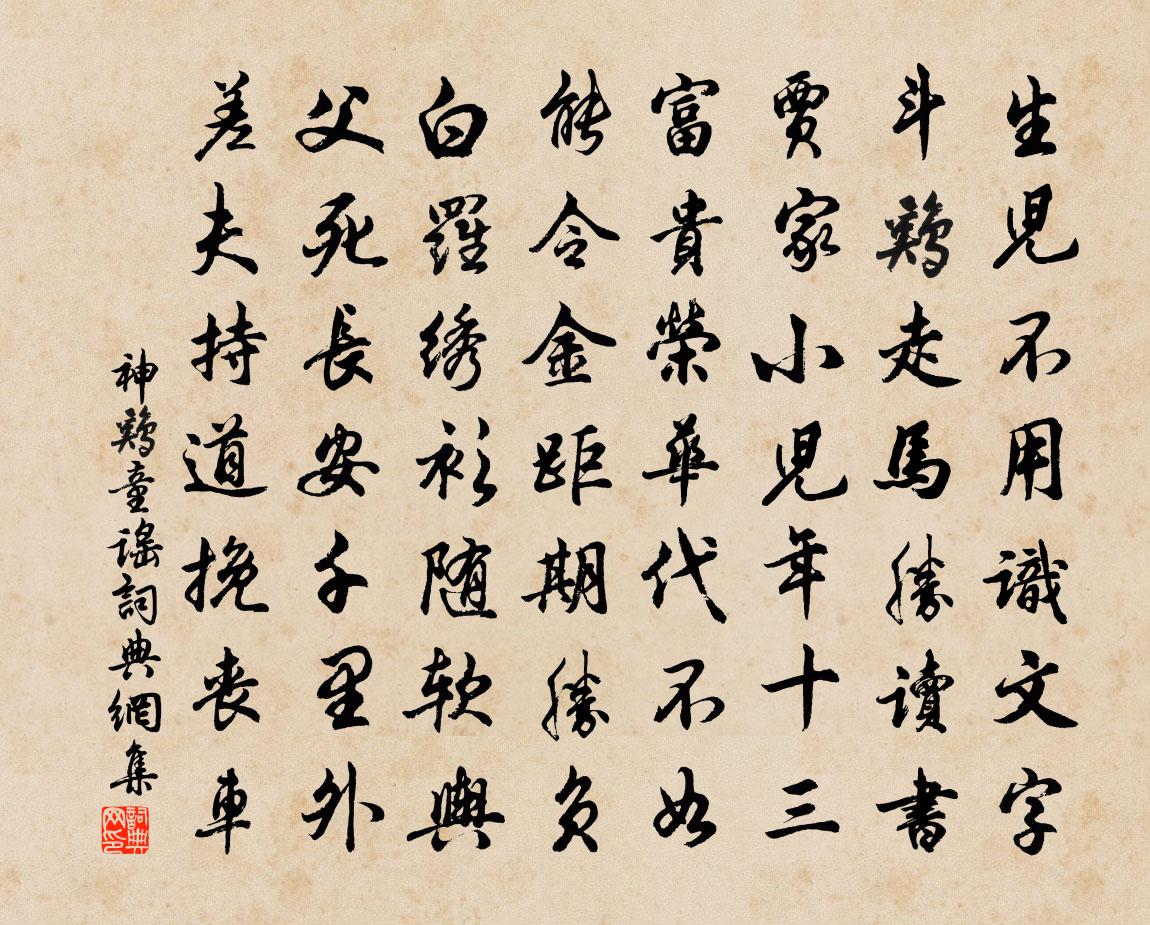 生兒不用識文字
斗鷄走馬勝讀書
賈家小兒年十三
富貴榮華代不如
能令金距期勝負
白羅綉衫隨軟輿
父死長安千里外
差夫持道挽喪車
神鷄童謠詞典網集
詞典网印